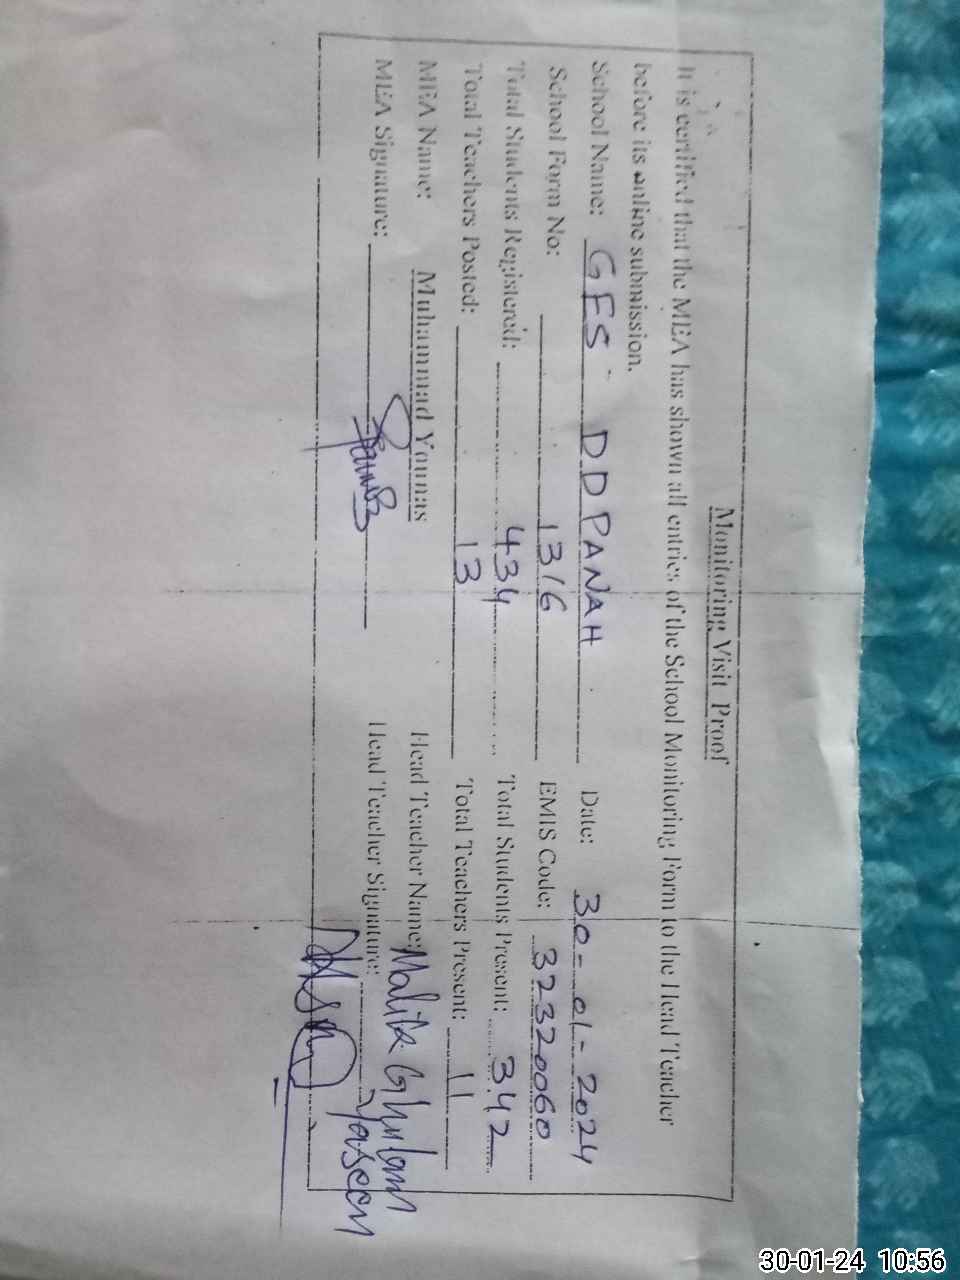 Monitoring Visit Proof
It is certified that the MEA has shown all entries of the School Monitoring Form to the Head Teacher
before its online submission.
School Name: GES DDPANAH Date: 30-01-2024
School Form No: 1316 EMIS Code: 32320060
Total Students Registered: 434 Total Students Present: 342
Total Teachers Posted: 13 Total Teachers Present: 11
MEA Name: Muhammad Younas Head Teacher Name: Malik Ghulam Yaseen
MEA Signature: Head Teacher Signature:
30-01-24 10:56